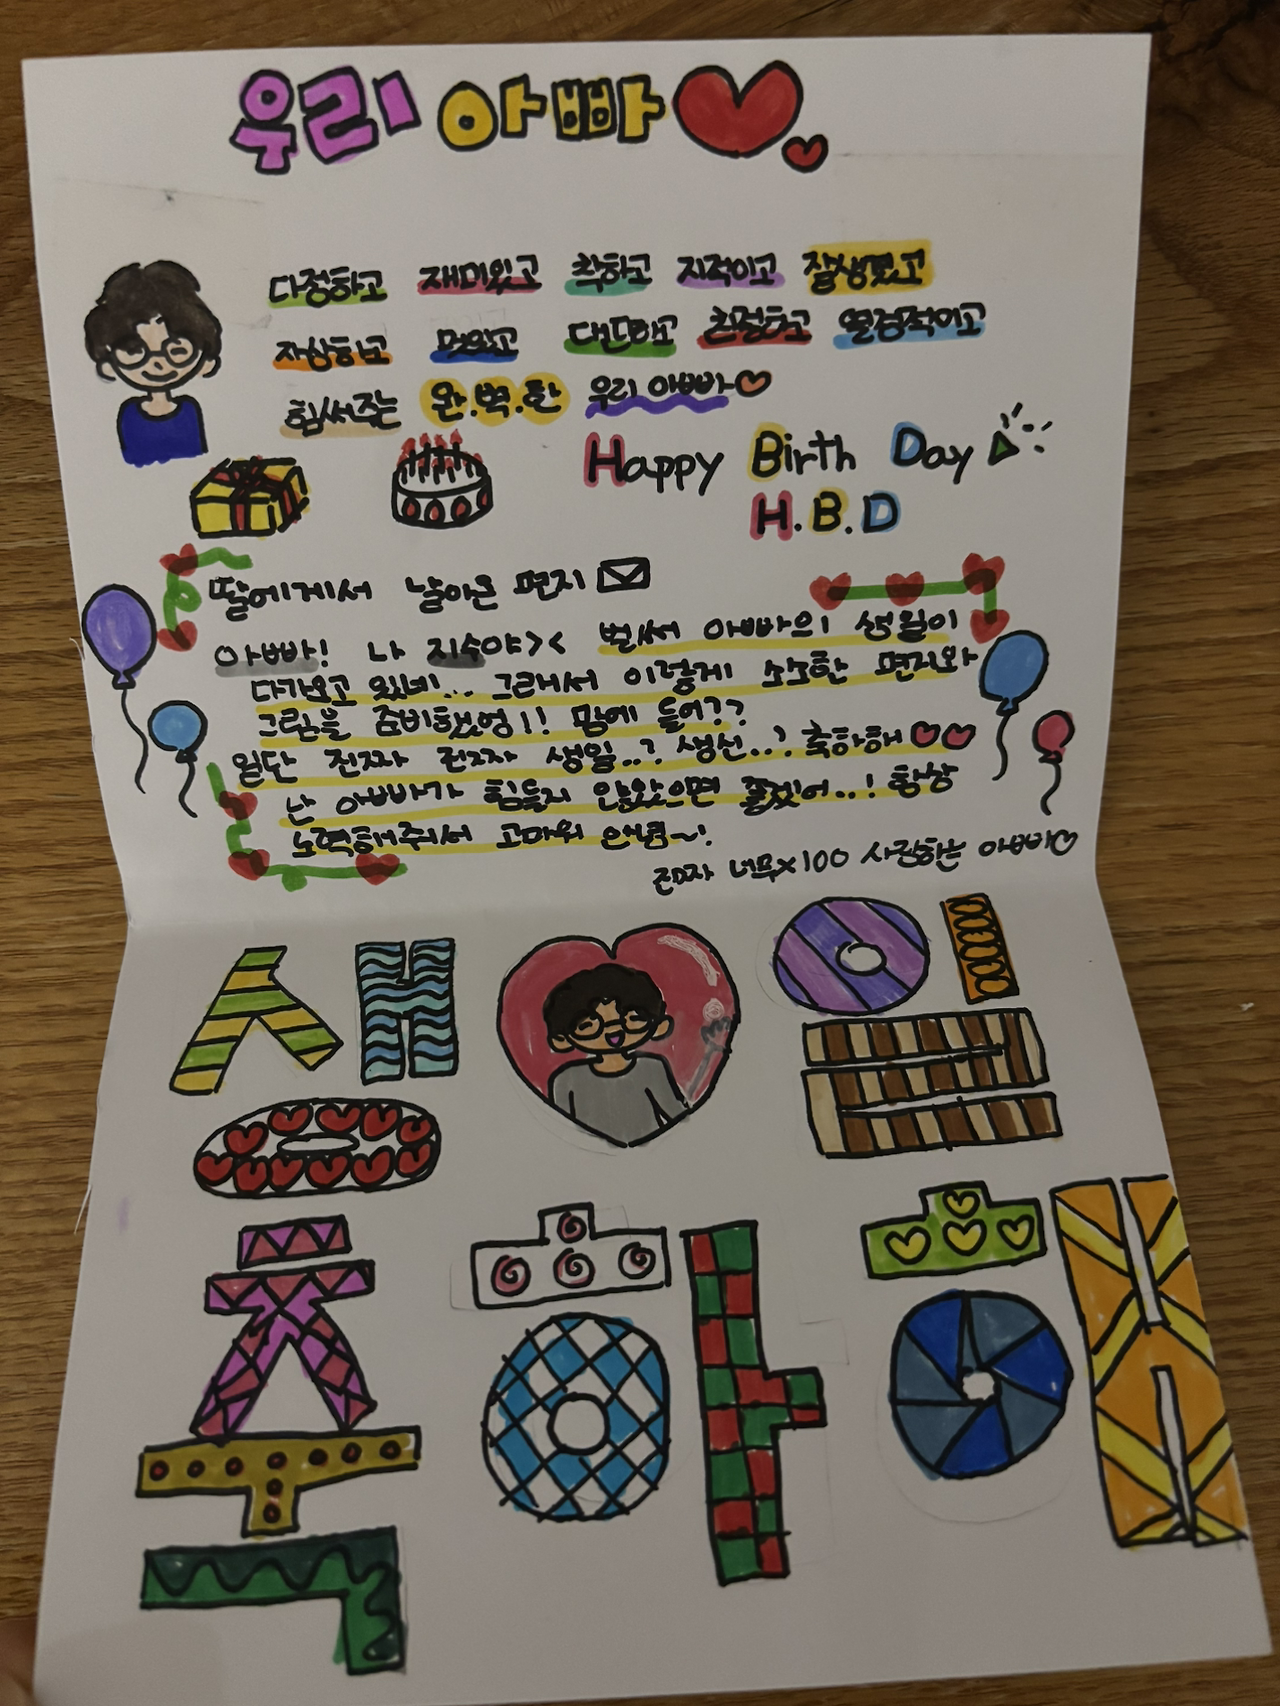 우리 아빠
다정하고 재미있고 착하고 지적이고 잘생겼고
자상하고 멋있고 대단하고 친절하고 열정적이고
힘써주는 완.벽.한 우리 아빠
Happy Birth Day
H.B.D
딸에게서 날아온 편지
아빠! 나 지수야>< 벌써 아빠의 생일이
다가오고 있네!... 그래서 이렇게 소소한 편지와
그림을 준비했엉!! 맘에 들어??
일단 진짜 진짜 생일..? 생신..? 축하해
난 아빠가 힘들지 않았으면 좋겠어..! 항상
노력해줘서 고마워 안녕~!
진짜 너무x100 사랑하는 아빠
생일
축하해